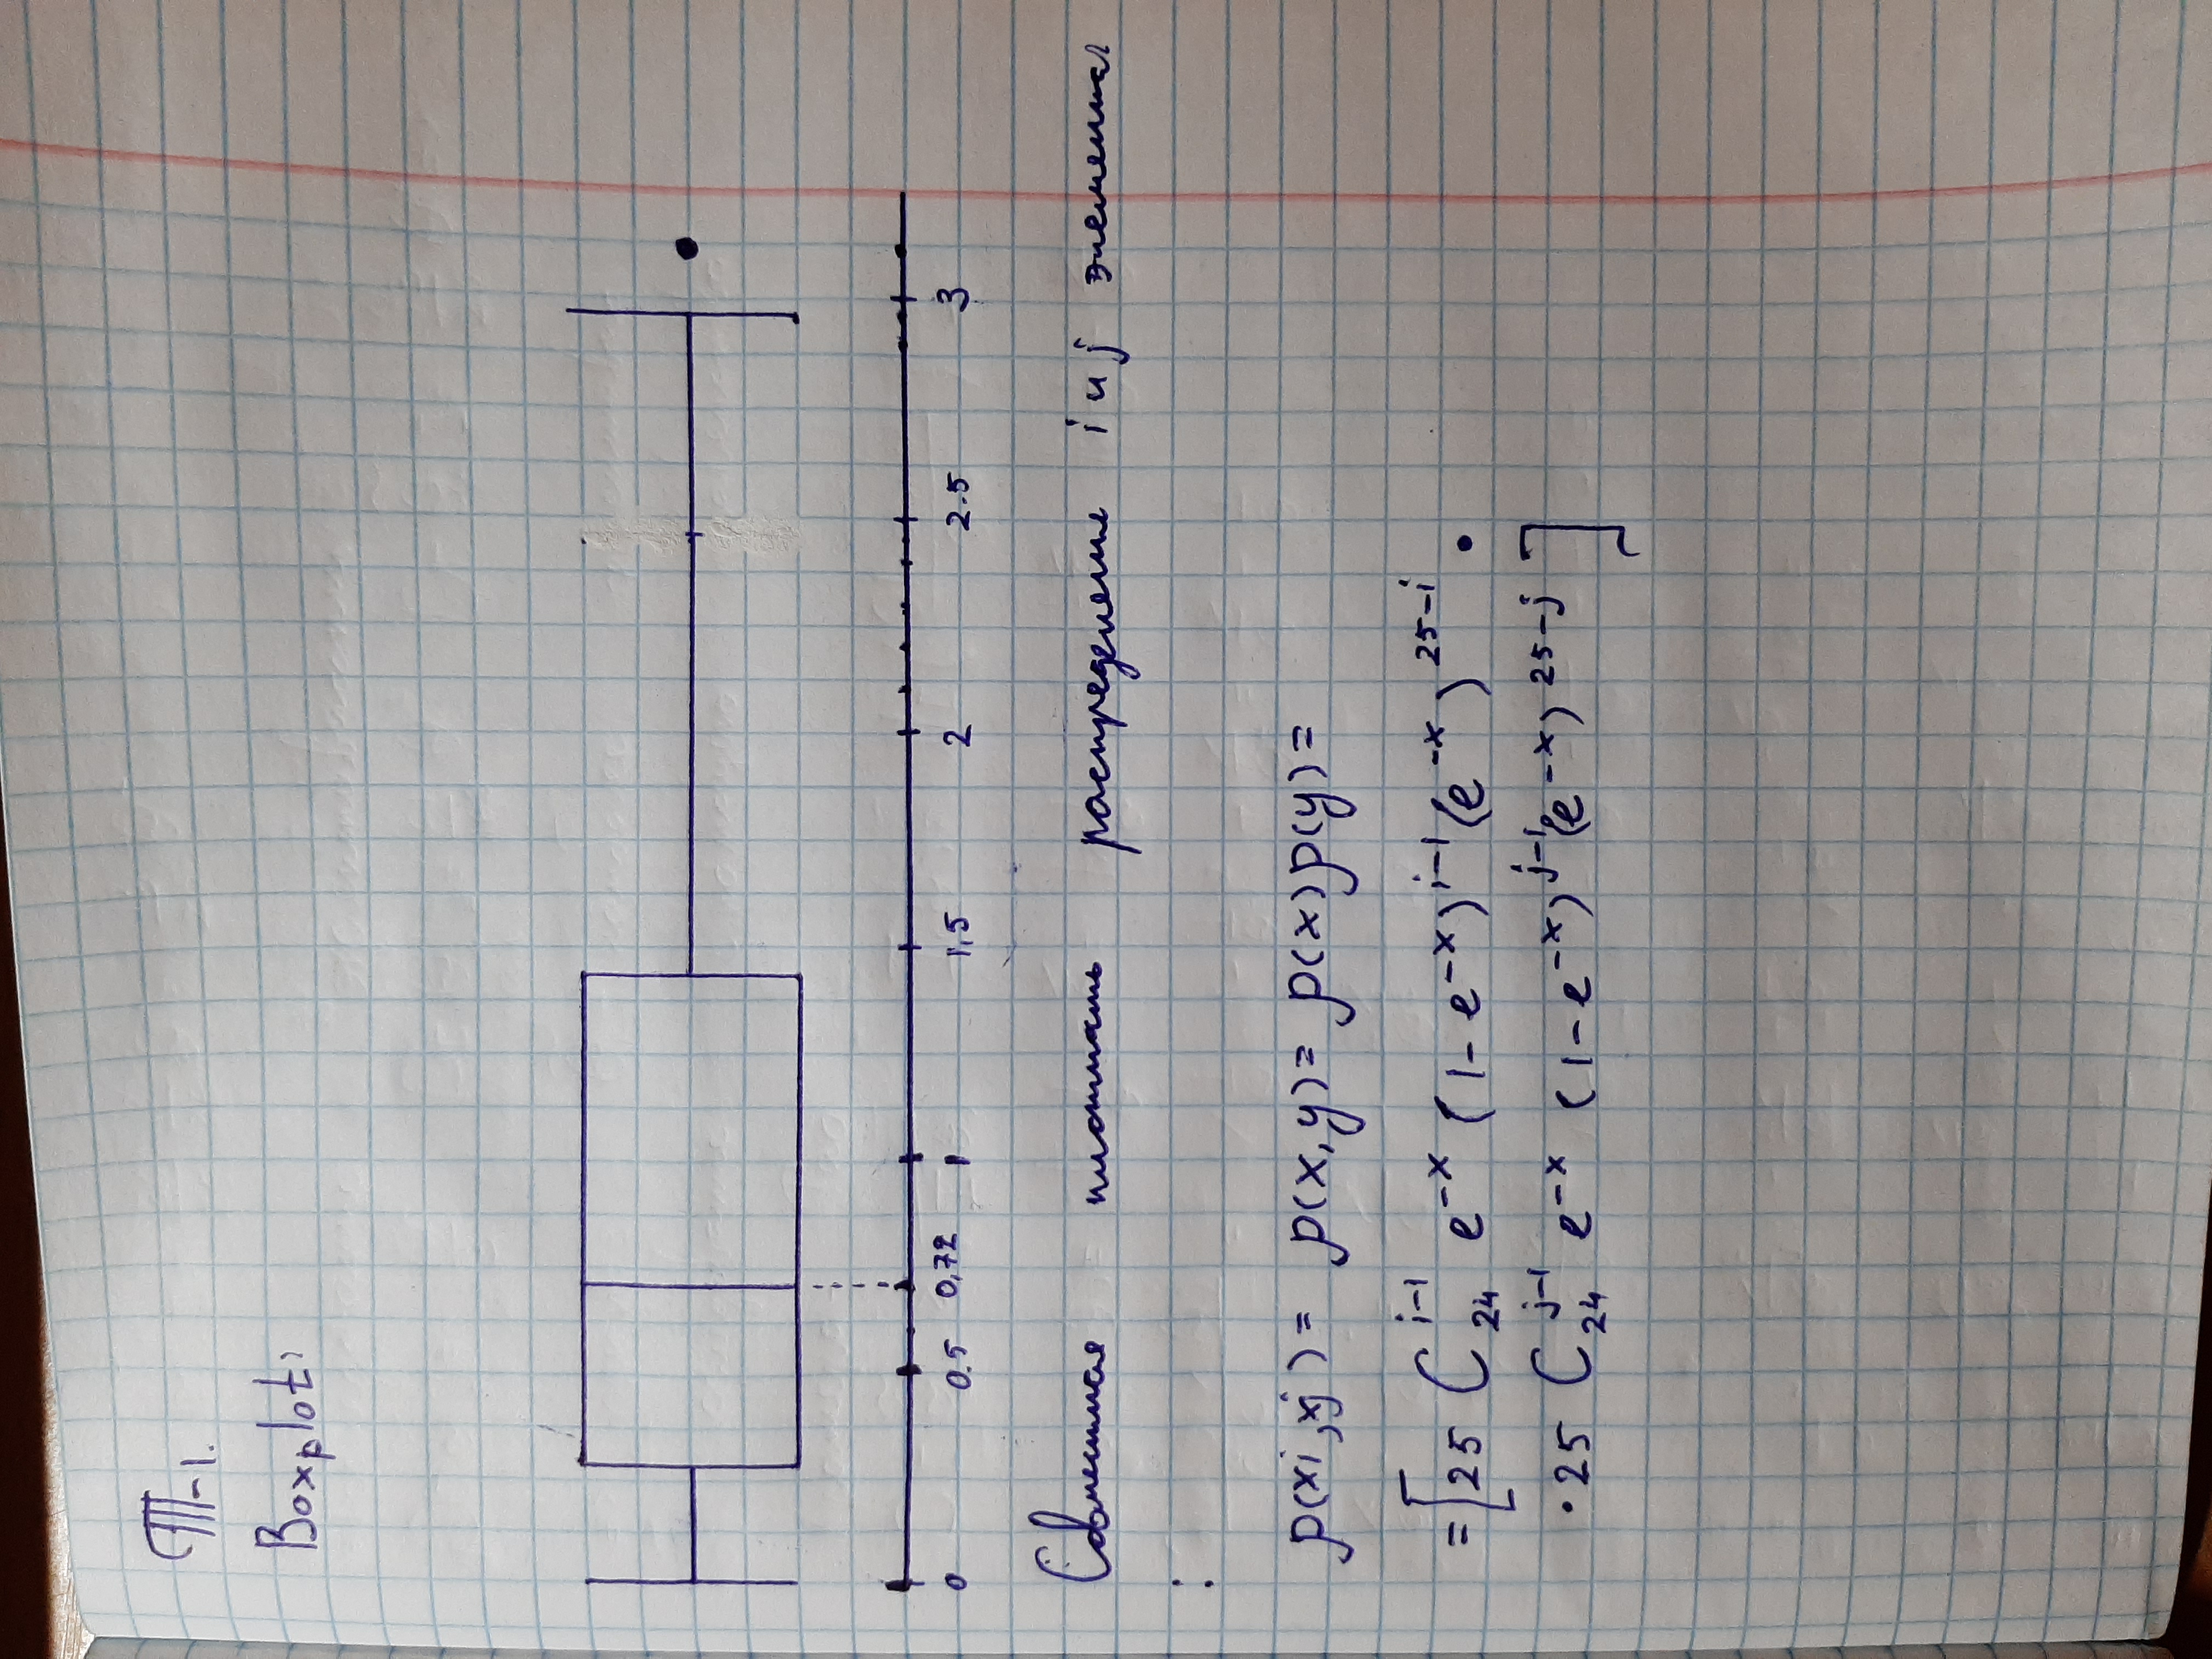 Т-1.
Boxplot:
0 0.5 0,72 1 1,5 2 2.5 3
Совместная плотность распределения i и j элемента
:
p(xi, xj) = p(x, y) = p(x)p(y) =
= [25 C_{24}^{i-1} e^{-x} (1-e^{-x})^{i-1} (e^{-x})^{25-i} •
• 25 C_{24}^{j-1} e^{-x} (1-e^{-x})^{j-1} (e^{-x})^{25-j}]